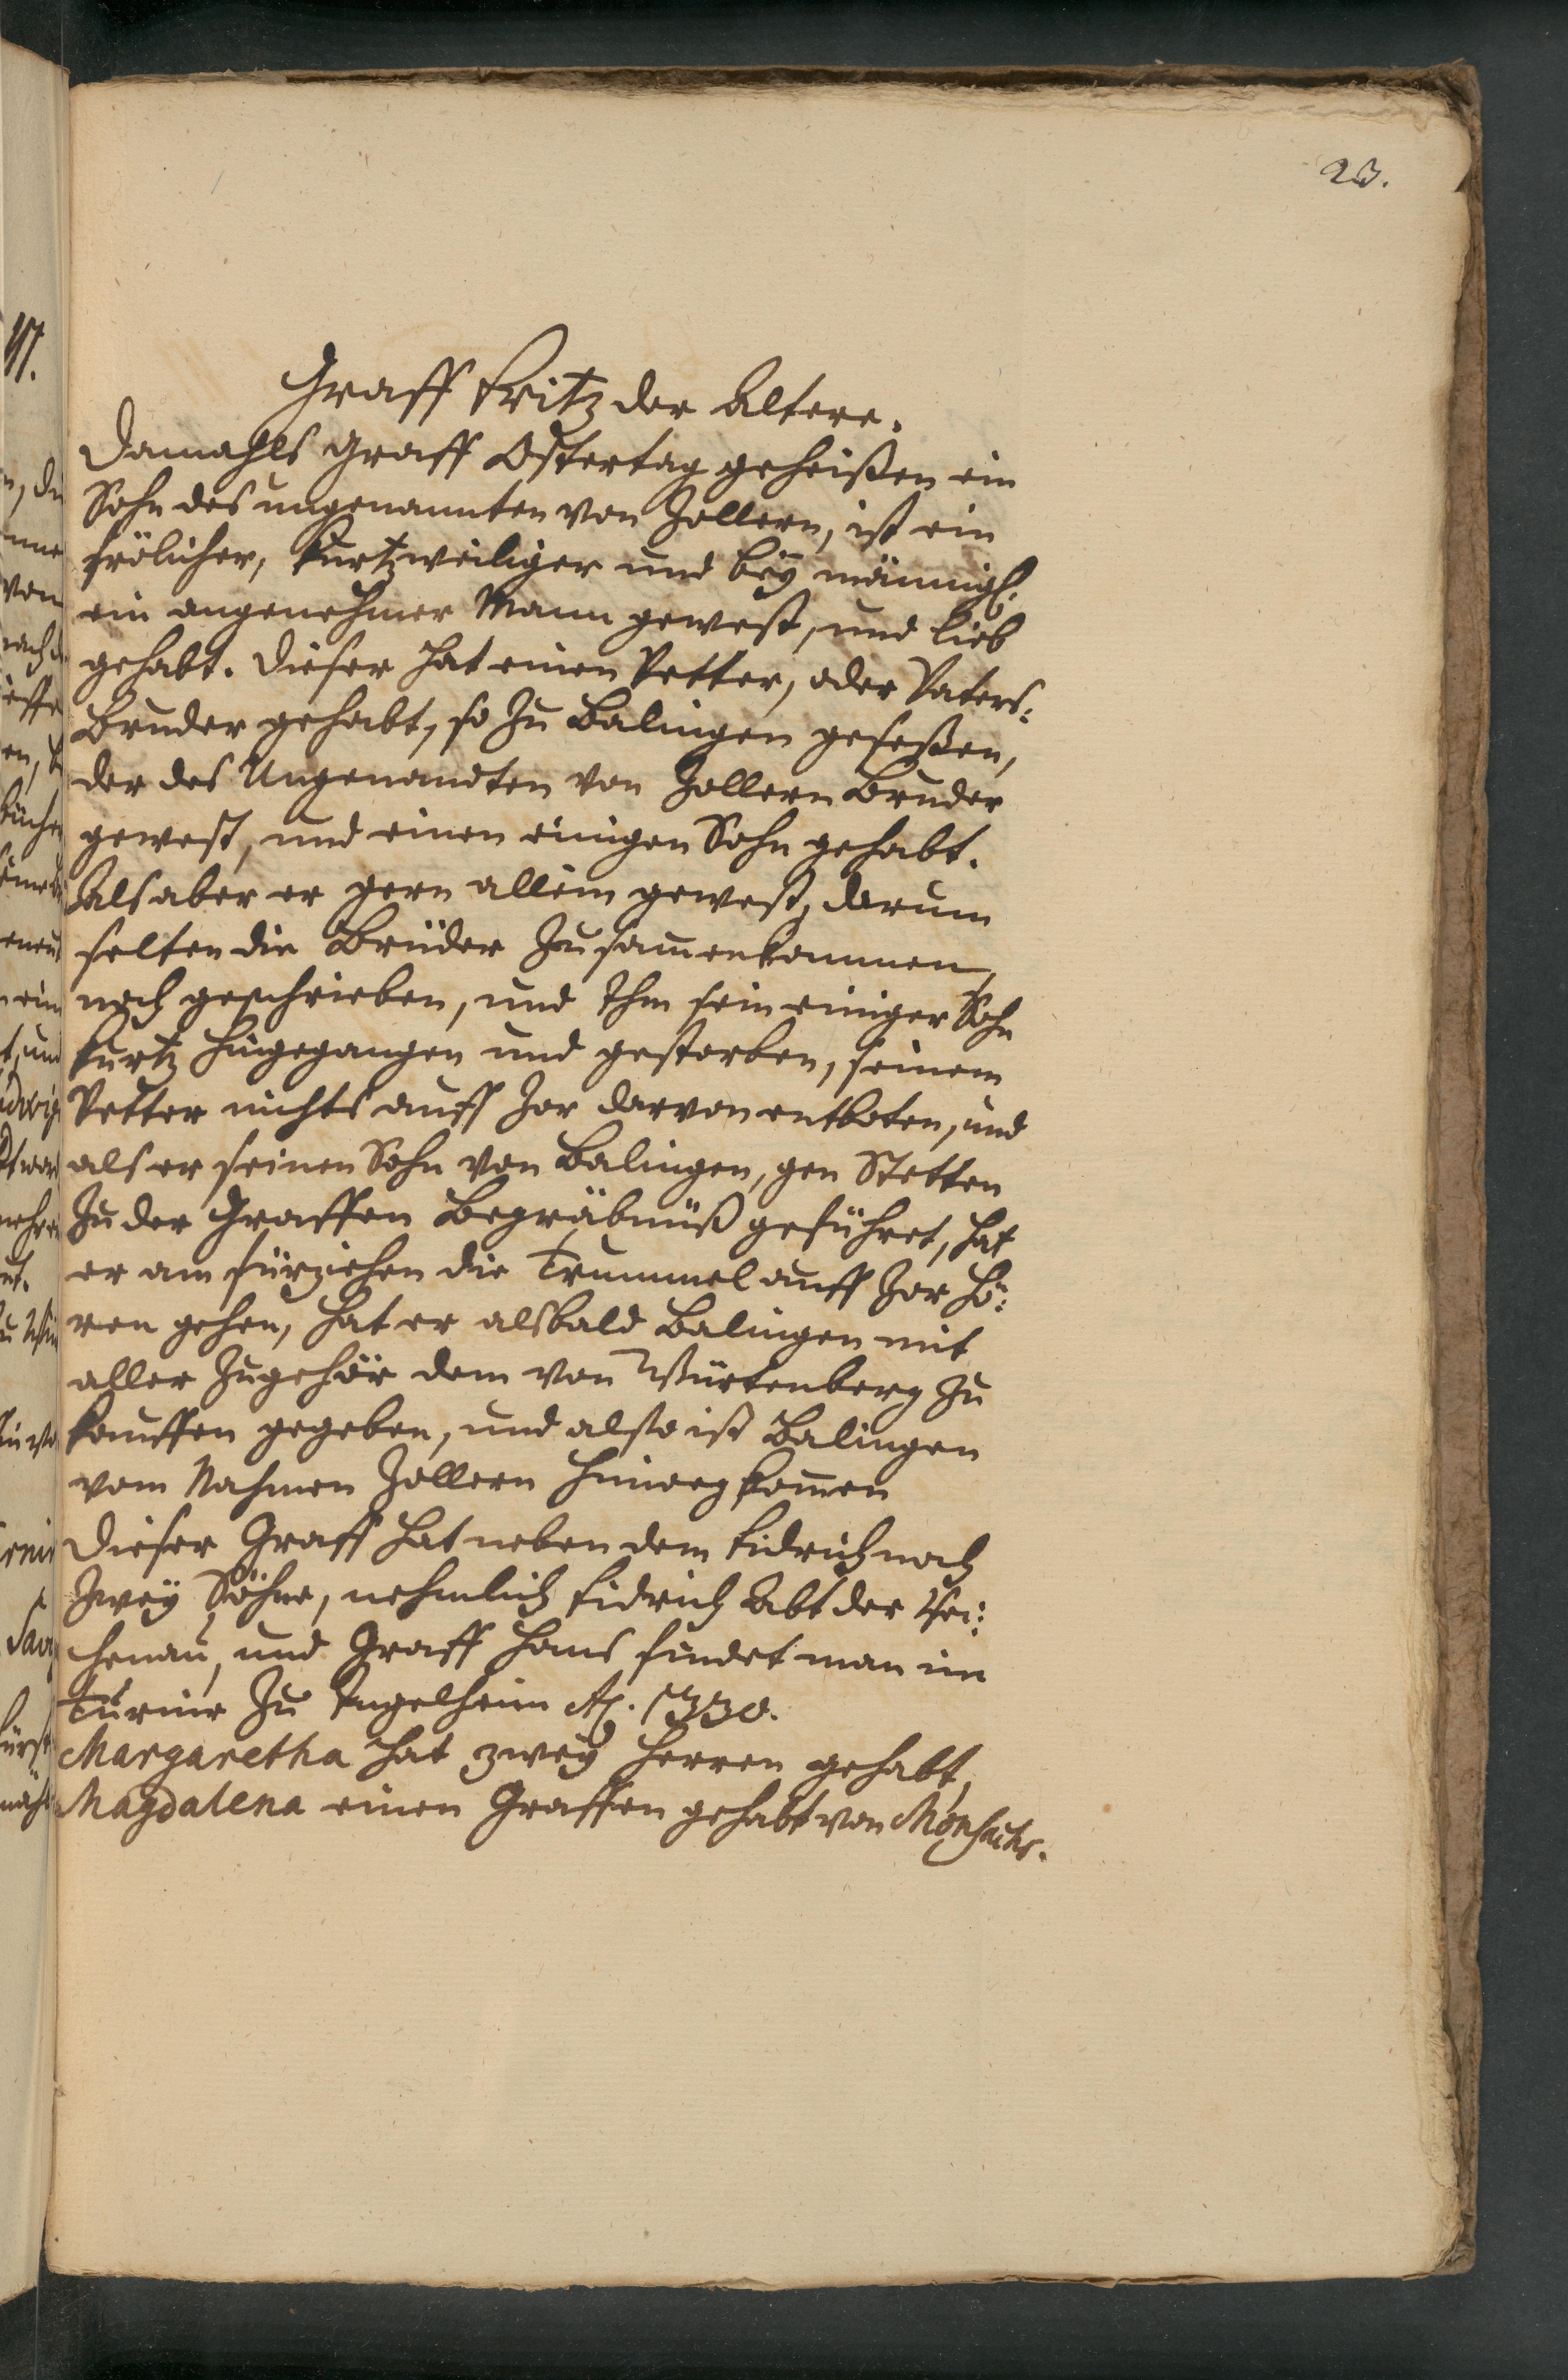 23.
Graff Fritz der Altere.
Damahls Graff Ostertag geheißen ein
Sohn des ungenannten von Zollern, ist ein
frölicher, kurtzweiliger und beÿ männigl.
ein angenehmer Mann gewest, und lieb
gehabt. Dieser hat einen Vetter, oder Vaters:
Bruder gehabt, so zu Balingen geseßen,
der des Ungenandten von Zollern Bruder
gewest, und einen einigen Sohn gehabt.
Als aber er gern allein gewest, darum
selten die Brüder zusam̅enkommen,
noch geschrieben, und Ihm sein einiger Sohn
kurtz hingegangen und gestorben, seinem
Vetter nichts auff Zor darvon entboten, und
als er seinen Sohn von Balingen, gen Stetten
zu der Graffen Begräbnüß geführet, hat
er am fürziehen die Trummel auff Zor hö:
ren gehen, hat er alsbald Balingen mit
aller Zugehör dem von Würtenberg zu
kauffen gegeben, und also ist Balingen
vom Nahmen Zollern hinweg kom̅en
Dieser Graff hat neben dem Fidrich noch
zweÿ Söhne, nehmlich Fidrich Abt der Rei:
chenau, und Graff Hans findet man im
Turnir zu Ingelheim Aō. 1330.
Margaretha hat zweÿ Herren gehabt,
Magdalena einen Graffen gehabt von